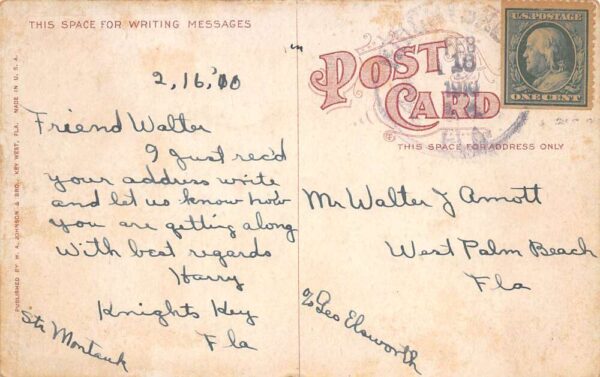 THIS SPACE FOR WRITING MESSAGES
2,16,'00
Friend Walter
I just rec'd
your address write
and let us know how
you are getting along
With best regards
Harry
Knights Key
Fla
Str Montauk
PUBLISHED BY H. A. JOHNSON & BRO., KEY WEST, FLA. MADE IN U. S. A.
POST
CARD
THIS SPACE FOR ADDRESS ONLY
U.S. POSTAGE
ONE CENT
FEB
16
Mr Walter J Arnott
West Palm Beach
Fla
c/o Geo Elsworth